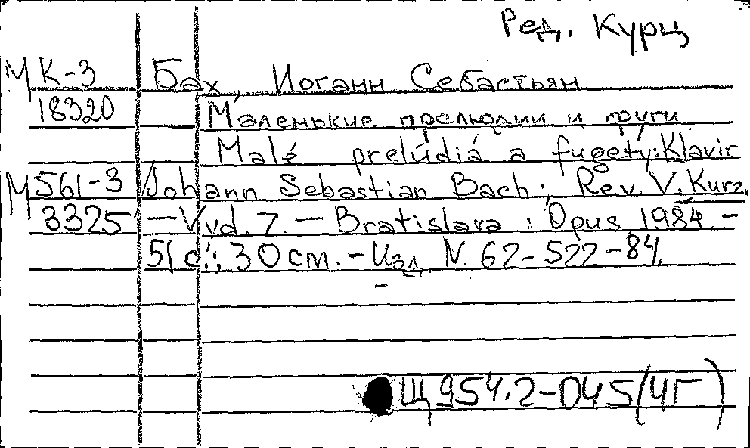 Ред. Курц
М К-3 Бах, Иоганн Себастьян
18320 Маленькие прелюдии и фуги
Malé prelúdiá a fugety: Klavir
М 561-3 Johann Sebastian Bach; Rev. V. Kurz.
3325 – Vyd. 7. – Bratislava: Opus 1984. –
51 с.; 30 см. – Изд. N. 62-522-84.
Щ954.2-045(4Г)